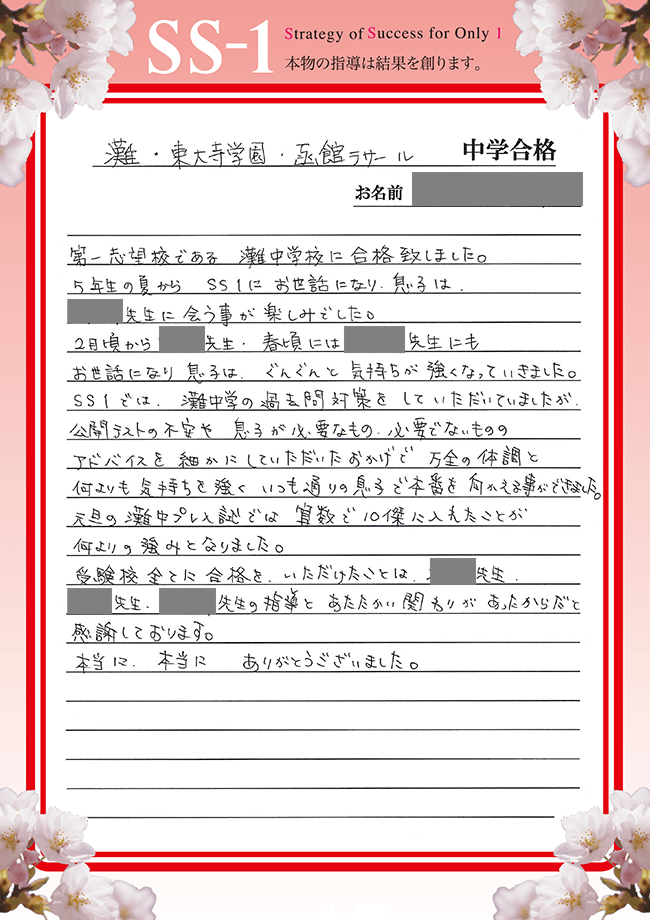 SS-1
Strategy of Success for Only 1
本物の指導は結果を創ります。
灘・東大寺学園・函館ラサール 中学合格
お名前
第一志望校である 灘中学校に合格致しました。
5年生の夏から SS1に お世話になり、息子は、
先生に会う事が楽しみでした。
2月頃から 先生・春頃には 先生にも
お世話になり息子は、ぐんぐんと気持ちが強くなっていきました。
SS1では、灘中学の過去問対策をしていただいていましたが、
公開テストの不安や 息子が必要なもの、必要でないものの
アドバイスを細かにしていただいたおかげで 万全の体調と
何よりも気持ちを強く いつも通りの息子で本番を向かえる事ができました。
元旦の灘中プレ入試では 算数で10傑に入れたことが
何よりの強みとなりました。
受験校全てに合格を、いただけたことは、 先生、
先生、 先生の指導と あたたかい関わりが あったからだと
感謝しております。
本当に、本当に ありがとうございました。